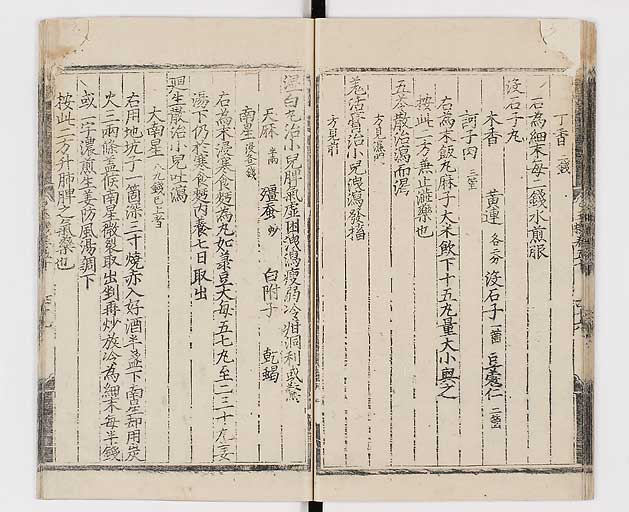 丁香 二錢
右為細末每二錢水煎服
沒石子丸
木香 黃連 各二分 沒石子 一箇 豆蔲仁 二箇
訶子肉 三箇
右為末飯丸麻子大米飲下十五丸量大小與之
按此二方無止澁藥也
五苓散治瀉而渴
方見
羌活膏治小兒洩瀉發搐
方見前
溫白丸治小兒脾氣虛困洩瀉瘦弱冷疳洞利或
天麻 半兩 殭蚕 炒 白附子 乾蝎
南星 各一錢
右為末湯浸寒食麪為丸如菉豆大每五七丸至二三十丸薑
湯下仍於寒食麪內養七日取出
廻生散治小兒吐瀉
大南星 八九錢已上者
右用地坑子一箇深三寸燒赤入好酒半盞下南星却用炭
火三兩條盖候南星微裂取出剉再炒放冷為細末每半錢
或一字濃煎生姜防風湯調下
按此二方升肺脾之氣藥也